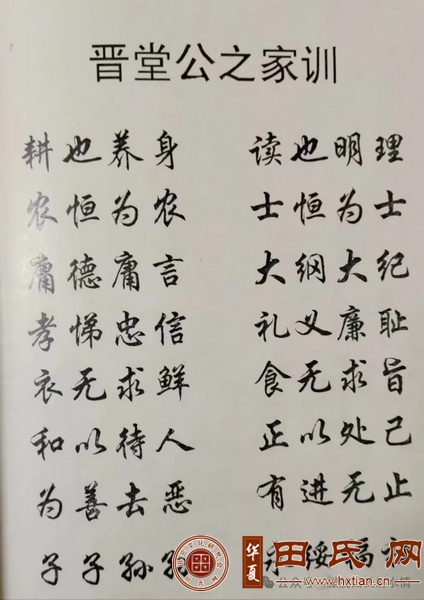 晋堂公之家训
耕也养身 读也明理
农恒为农 士恒为士
庸德庸言 大纲大纪
孝悌忠信 礼义廉耻
衣无求鲜 食无求旨
和以待人 正以处己
为善去恶 有进无止
子子孙 绥福
华夏
田氏网
www.hxtian.cn
公众号